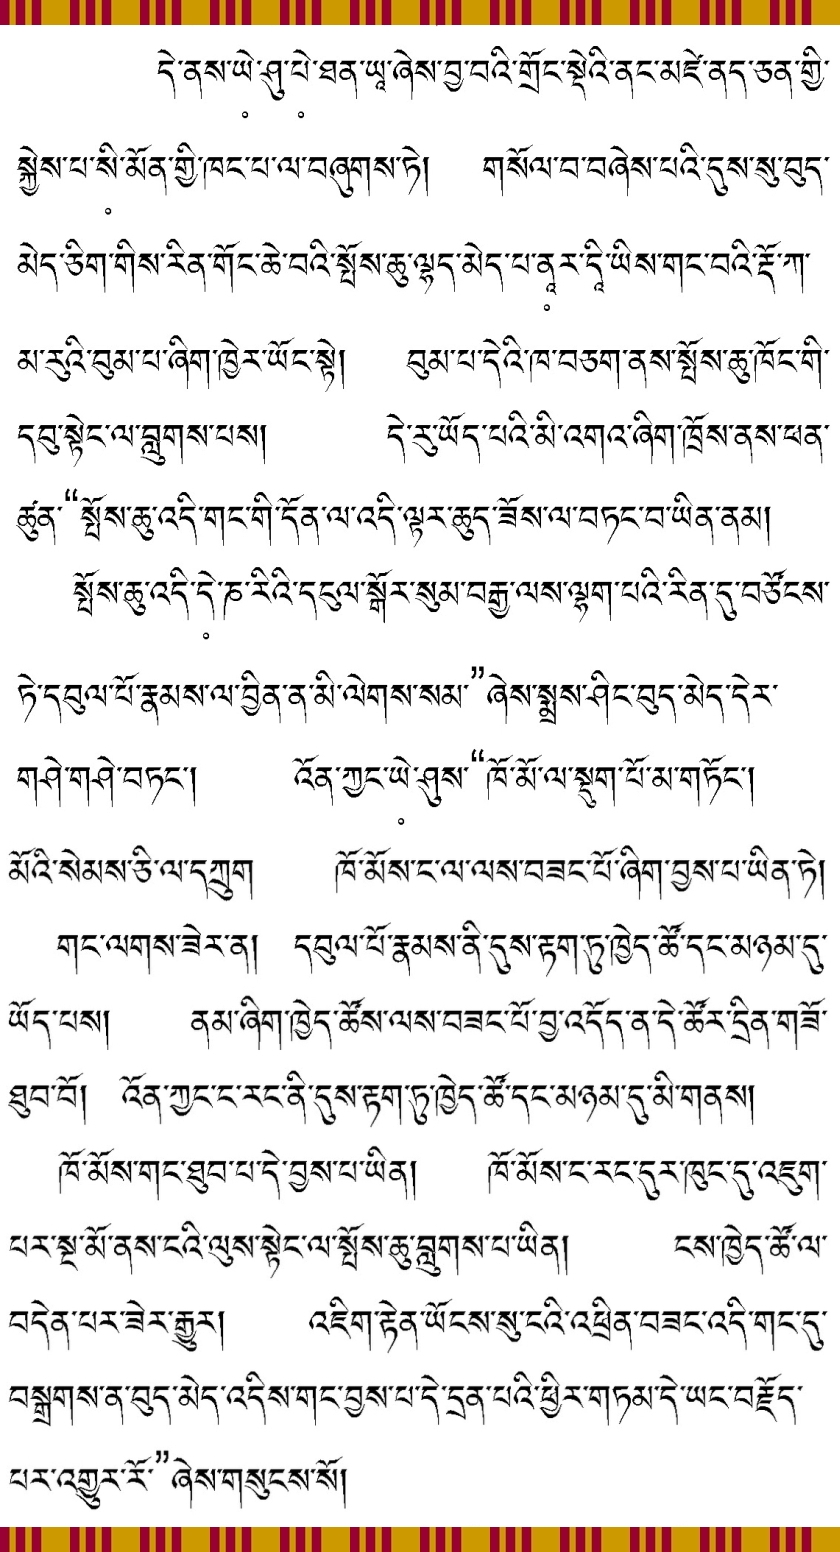 དེ་ནས་ཡེ༷་ཤུ་པེ༷་ཐན་ཡཱ་ཞེས་བྱ་བའི་གྲོང་སྡེའི་ནང་མཛེ་ནད་ཅན་གྱི་
སྐྱེས་པ་སི༷་མོན་གྱི་ཁང་པ་ལ་བཞུགས་ཏེ། གསོལ་བ་བཞེས་པའི་དུས་སུ་བུད་
མེད་ཅིག་གིས་རིན་གོང་ཆེ་བའི་སྤོས་ཆུ་ལྷད་མེད་པ་ནཱ༷ར་དཱི་ཡིས་གང་བའི་རྡོ་ཀ་
མ་རུའི་བུམ་པ་ཞིག་ཁྱེར་ཡོང་སྟེ། བུམ་པ་དེའི་ཁ་བཅག་ནས་སྤོས་ཆུ་ཁོང་གི་
དབུ་སྟེང་ལ་བླུགས་པས། དེ་རུ་ཡོད་པའི་མི་འགའ་ཞིག་ཁྲོས་ནས་ཕན་
ཚུན་“སྤོས་ཆུ་འདི་གང་གི་དོན་ལ་འདི་ལྟར་ཆུད་ཟོས་ལ་བཏང་བ་ཡིན་ནམ།
སྤོས་ཆུ་འདི་དེ༷་ཎ་རིའི་དངུལ་སྒོར་སུམ་བརྒྱ་ལས་ལྷག་པའི་རིན་དུ་བཙོངས་
ཏེ་དབུལ་པོ་རྣམས་ལ་བྱིན་ན་མི་ལེགས་སམ་”ཞེས་སྨྲས་ཤིང་བུད་མེད་དེར་
གཤེ་གཤེ་བཏང་། འོན་ཀྱང་ཡེ༷་ཤུས་“ཁོ་མོ་ལ་སྡུག་པོ་མ་གཏོང་།
མོའི་སེམས་ཅི་ལ་དཀྲུག ཁོ་མོས་ང་ལ་ལས་བཟང་པོ་ཞིག་བྱས་པ་ཡིན་ཏེ།
གང་ལགས་ཟེར་ན། དབུལ་པོ་རྣམས་ནི་དུས་རྟག་ཏུ་ཁྱེད་ཚོ་དང་མཉམ་དུ་
ཡོད་པས། ནམ་ཞིག་ཁྱེད་ཚོས་ལས་བཟང་པོ་བྱ་འདོད་ན་དེ་ཚོར་དྲིན་གཟོ་
ཐུབ་བོ། འོན་ཀྱང་ང་རང་ནི་དུས་རྟག་ཏུ་ཁྱེད་ཚོ་དང་མཉམ་དུ་མི་གནས།
ཁོ་མོས་གང་ཐུབ་པ་དེ་བྱས་པ་ཡིན། ཁོ་མོས་ང་རང་དུར་ཁུང་དུ་འཇུག་
པར་སྔ་མོ་ནས་ངའི་ལུས་སྟེང་ལ་སྤོས་ཆུ་བླུགས་པ་ཡིན། ངས་ཁྱེད་ཚོ་ལ་
བདེན་པར་ཟེར་རྒྱུར། འཇིག་རྟེན་ཡོངས་སུ་ངའི་འཕྲིན་བཟང་འདི་གང་དུ་
བསྒྲགས་ན་བུད་མེད་འདིས་གང་བྱས་པ་དེ་དྲན་པའི་ཕྱིར་གཏམ་དེ་ཡང་བརྗོད་
པར་འགྱུར་རོ་”ཞེས་གསུངས་སོ།